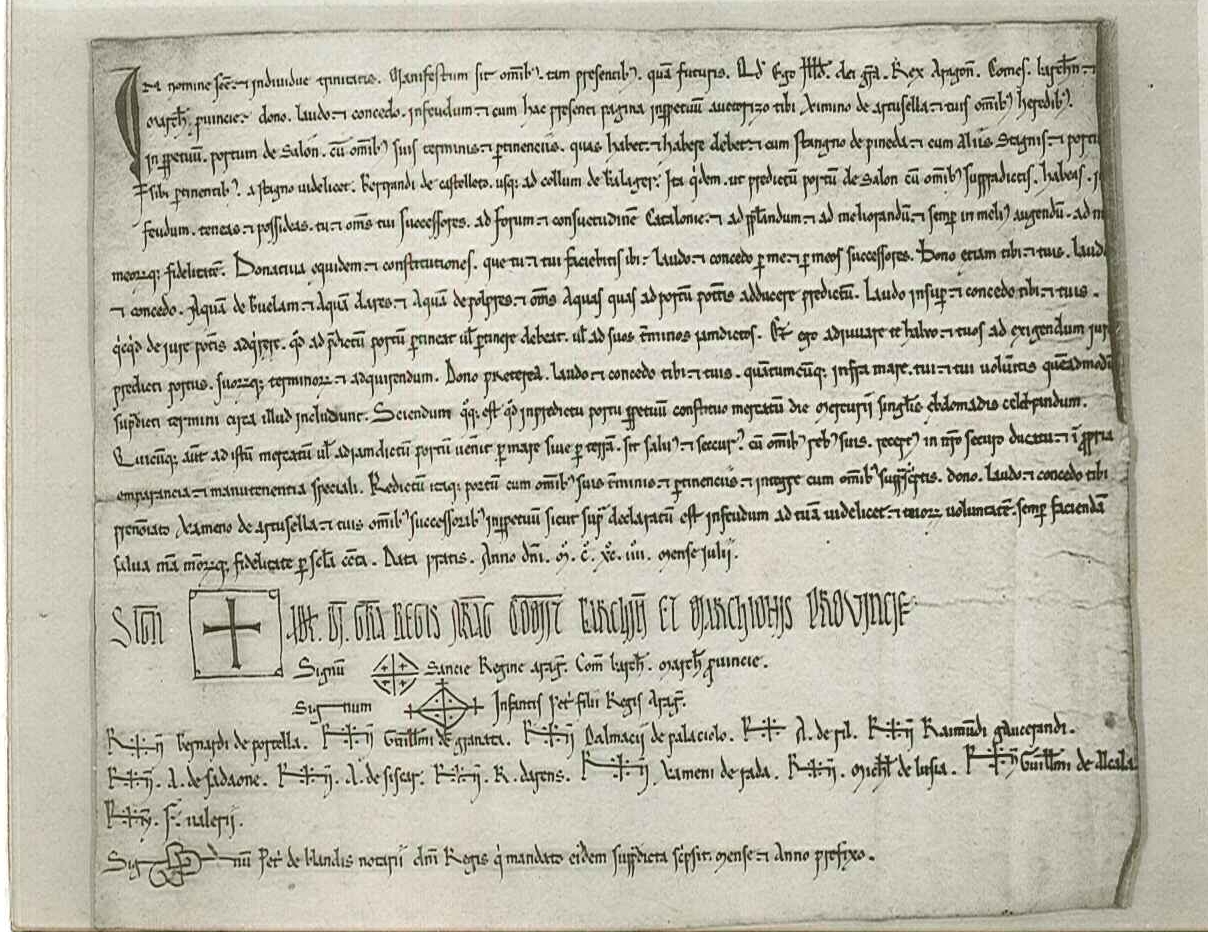 In nomine scē ⁊ individue trinitatis. Manifestum sit omībꝰ tam presentibꝰ quā futuris. Qđ Ego Ildf. dei grā. Rex Aragoñ. Comes. barchñ ⁊
march̄. ꝓuincie. dono. laudo ⁊ concedo. infeudum ⁊ cum hac presenti pagina inꝑpetuū auctorizo tibi Eximino de artusella ⁊ tuis omībꝰ heredibꝰ.
in ꝑpetuū. portum de Salon. cū omībꝰ suis terminis ⁊ ꝑtinenciis. quas habet ⁊ habere debet ⁊ cum stangno de pineda ⁊ cum Aliis Stagnis ⁊ portu
sibi ꝑtinentibꝰ. a stagno uidelicet. berrandi de castelleto. usqꝫ ad collum de balager. Ita qⁱdem. ut predictū portū de Salon cū omībꝰ supradictis. habeas. i
feudum. teneas ⁊ possideas. tu ⁊ om̄s tui successores. ad forum ⁊ consuetudinē Catalonie ⁊ ad pplandum ⁊ ad meliorandū ⁊ semꝑ in meliꝰ augendū. ad m
meorꝝqꝫ fidelitatē. Donatiua equidem ⁊ constitutiones. que tu ⁊ tui facietis ibi. laudo ⁊ concedo ꝑ me ⁊ ꝑ meos successores. Dono etiam tibi ⁊ tuis. laudo
⁊ concedo. Aquā de buelam ⁊ Aquā dares ⁊ Aquā de polpres ⁊ om̄s Aquas quas ad portū pot̄tis adducere predictū. Laudo insuꝑ ⁊ concedo tibi ⁊ tuis.
qⁱcqⁱd de iure pot̄tis adqⁱrere. qđ ad p̄dictū portū ꝑtineat ul̄ ꝑtinere debeat. ul̄ ad suos t̄minos iamdictos. Et ego adiuuare te habeo ⁊ tuos ad exigendum iura
predicti portus. suorꝝqꝫ terminorꝝ ⁊ adquirendum. Dono preterea. laudo ⁊ concedo tibi ⁊ tuis. quātumcūqꝫ infra mare. tui ⁊ tui uolueritis quēadmodū
sup̄dicti termini circa illud includunt. Sciendum qⁱqꝫ est qđ inpredictu portu ꝑpetuū constituo mercatū die mercurii singul̄is ebdomadis celebrandum.
Quicūqꝫ aūt ad istū mercatū ul̄ adiamdictū portū uēnit ꝑ mare siue ꝑ terrā. sit saluꝰ ⁊ securꝰ. cū omībꝰ rebꝰ suis. receptꝰ in nr̄o securo ducatu ⁊ ī ꝓpria
emparancia ⁊ manutenentia speciali. Redictū itaqꝫ portū cum omībꝰ suis t̄minis ⁊ ꝑtinenciis ⁊ integre cum omībꝰ sup̄scⁱptis. dono. laudo ⁊ concedo tibi
prenōiato Exameno de artusella ⁊ tuis omībꝰ successoribꝰ inꝑpetuū sicut sup̄ declaratū est infeudum ad tuā uidelicet ⁊ tuorꝝ uoluntatē. semꝑ faciendā
salua m̄a m̄orꝝqꝫ fidelitate ꝑ scl̄a cc̄ta. Data pratis. Anno dn̄i. M̊. C̊. XC̊. IIII. mense iulii.
SIGN ILDF. DI. GRA REGIS ARAG COMIT BARCHN ET MARCHIONIS PROVINCIE
Signū Sancie Regine arag̃. Com barch̄. march̄ ꝓuincie.
Signum Infantis Pet̉ filii Regis Arag̃.
bernardi de portella. Guillmi de granata. Dalmacii de palaciolo. A. de fil. Raimūdi gaucerandi.
A. de sadaone. A. de siscar. R. darens. Exameni de rada. Mich̄l de lusia. Guillmi de Alcala.
F. ualerii.
Sig nū Pet̉ de blandis notarii dn̄i Regis qⁱ mandato eidem sup̄dicta sc̄psit. mense ⁊ Anno prefixo.